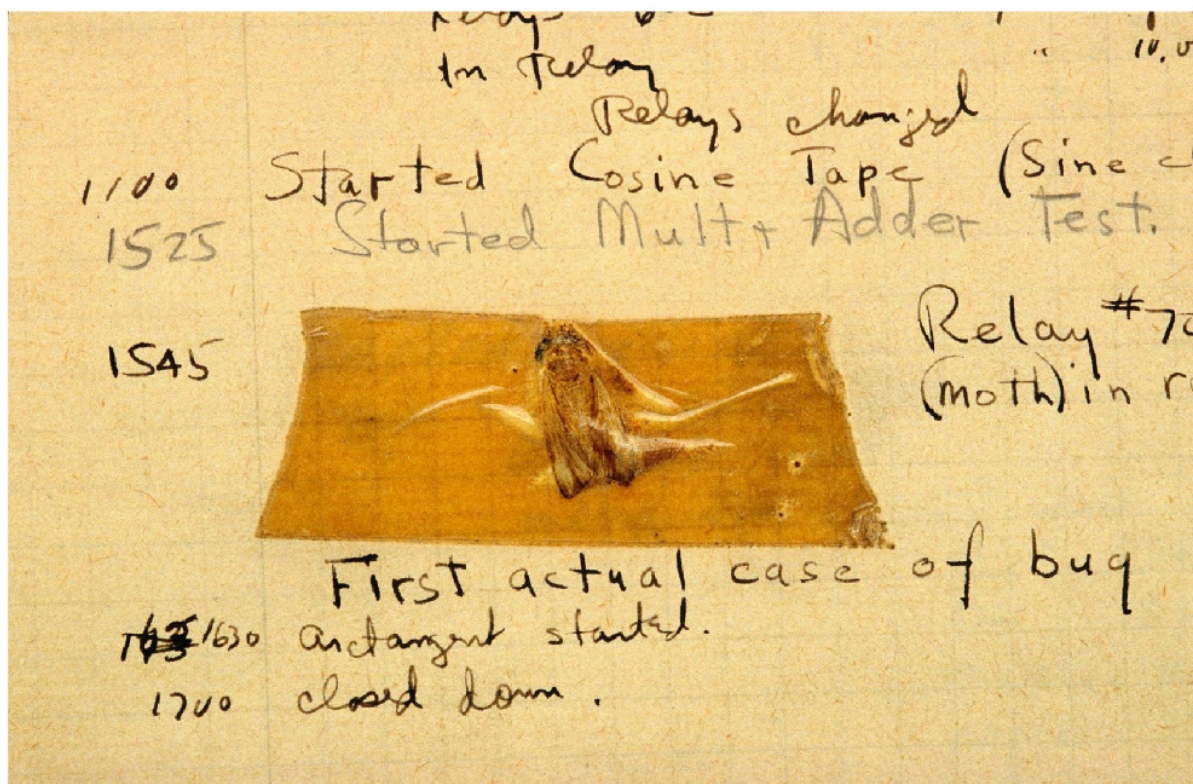 In Relay " 10.0
Relays changed
1100 Started Cosine Tape (Sine c
1525 Started Mult + Adder Test.
1545 Relay #70
(moth) in r
First actual case of bug
1630 arctangent started.
1700 closed down.